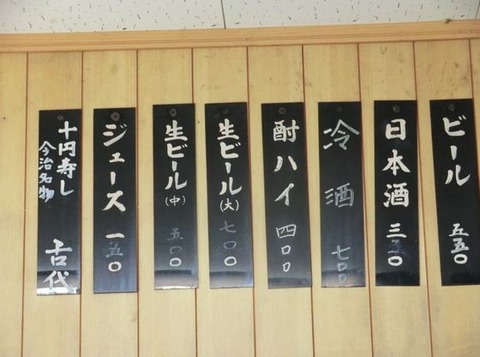 ビール 五五〇
日本酒 三五〇
冷酒 七〇〇
酎ハイ 四〇〇
生ビール(大) 七〇〇
生ビール(中) 五〇〇
ジュース 一五〇
十円寿し
今治名物
古代